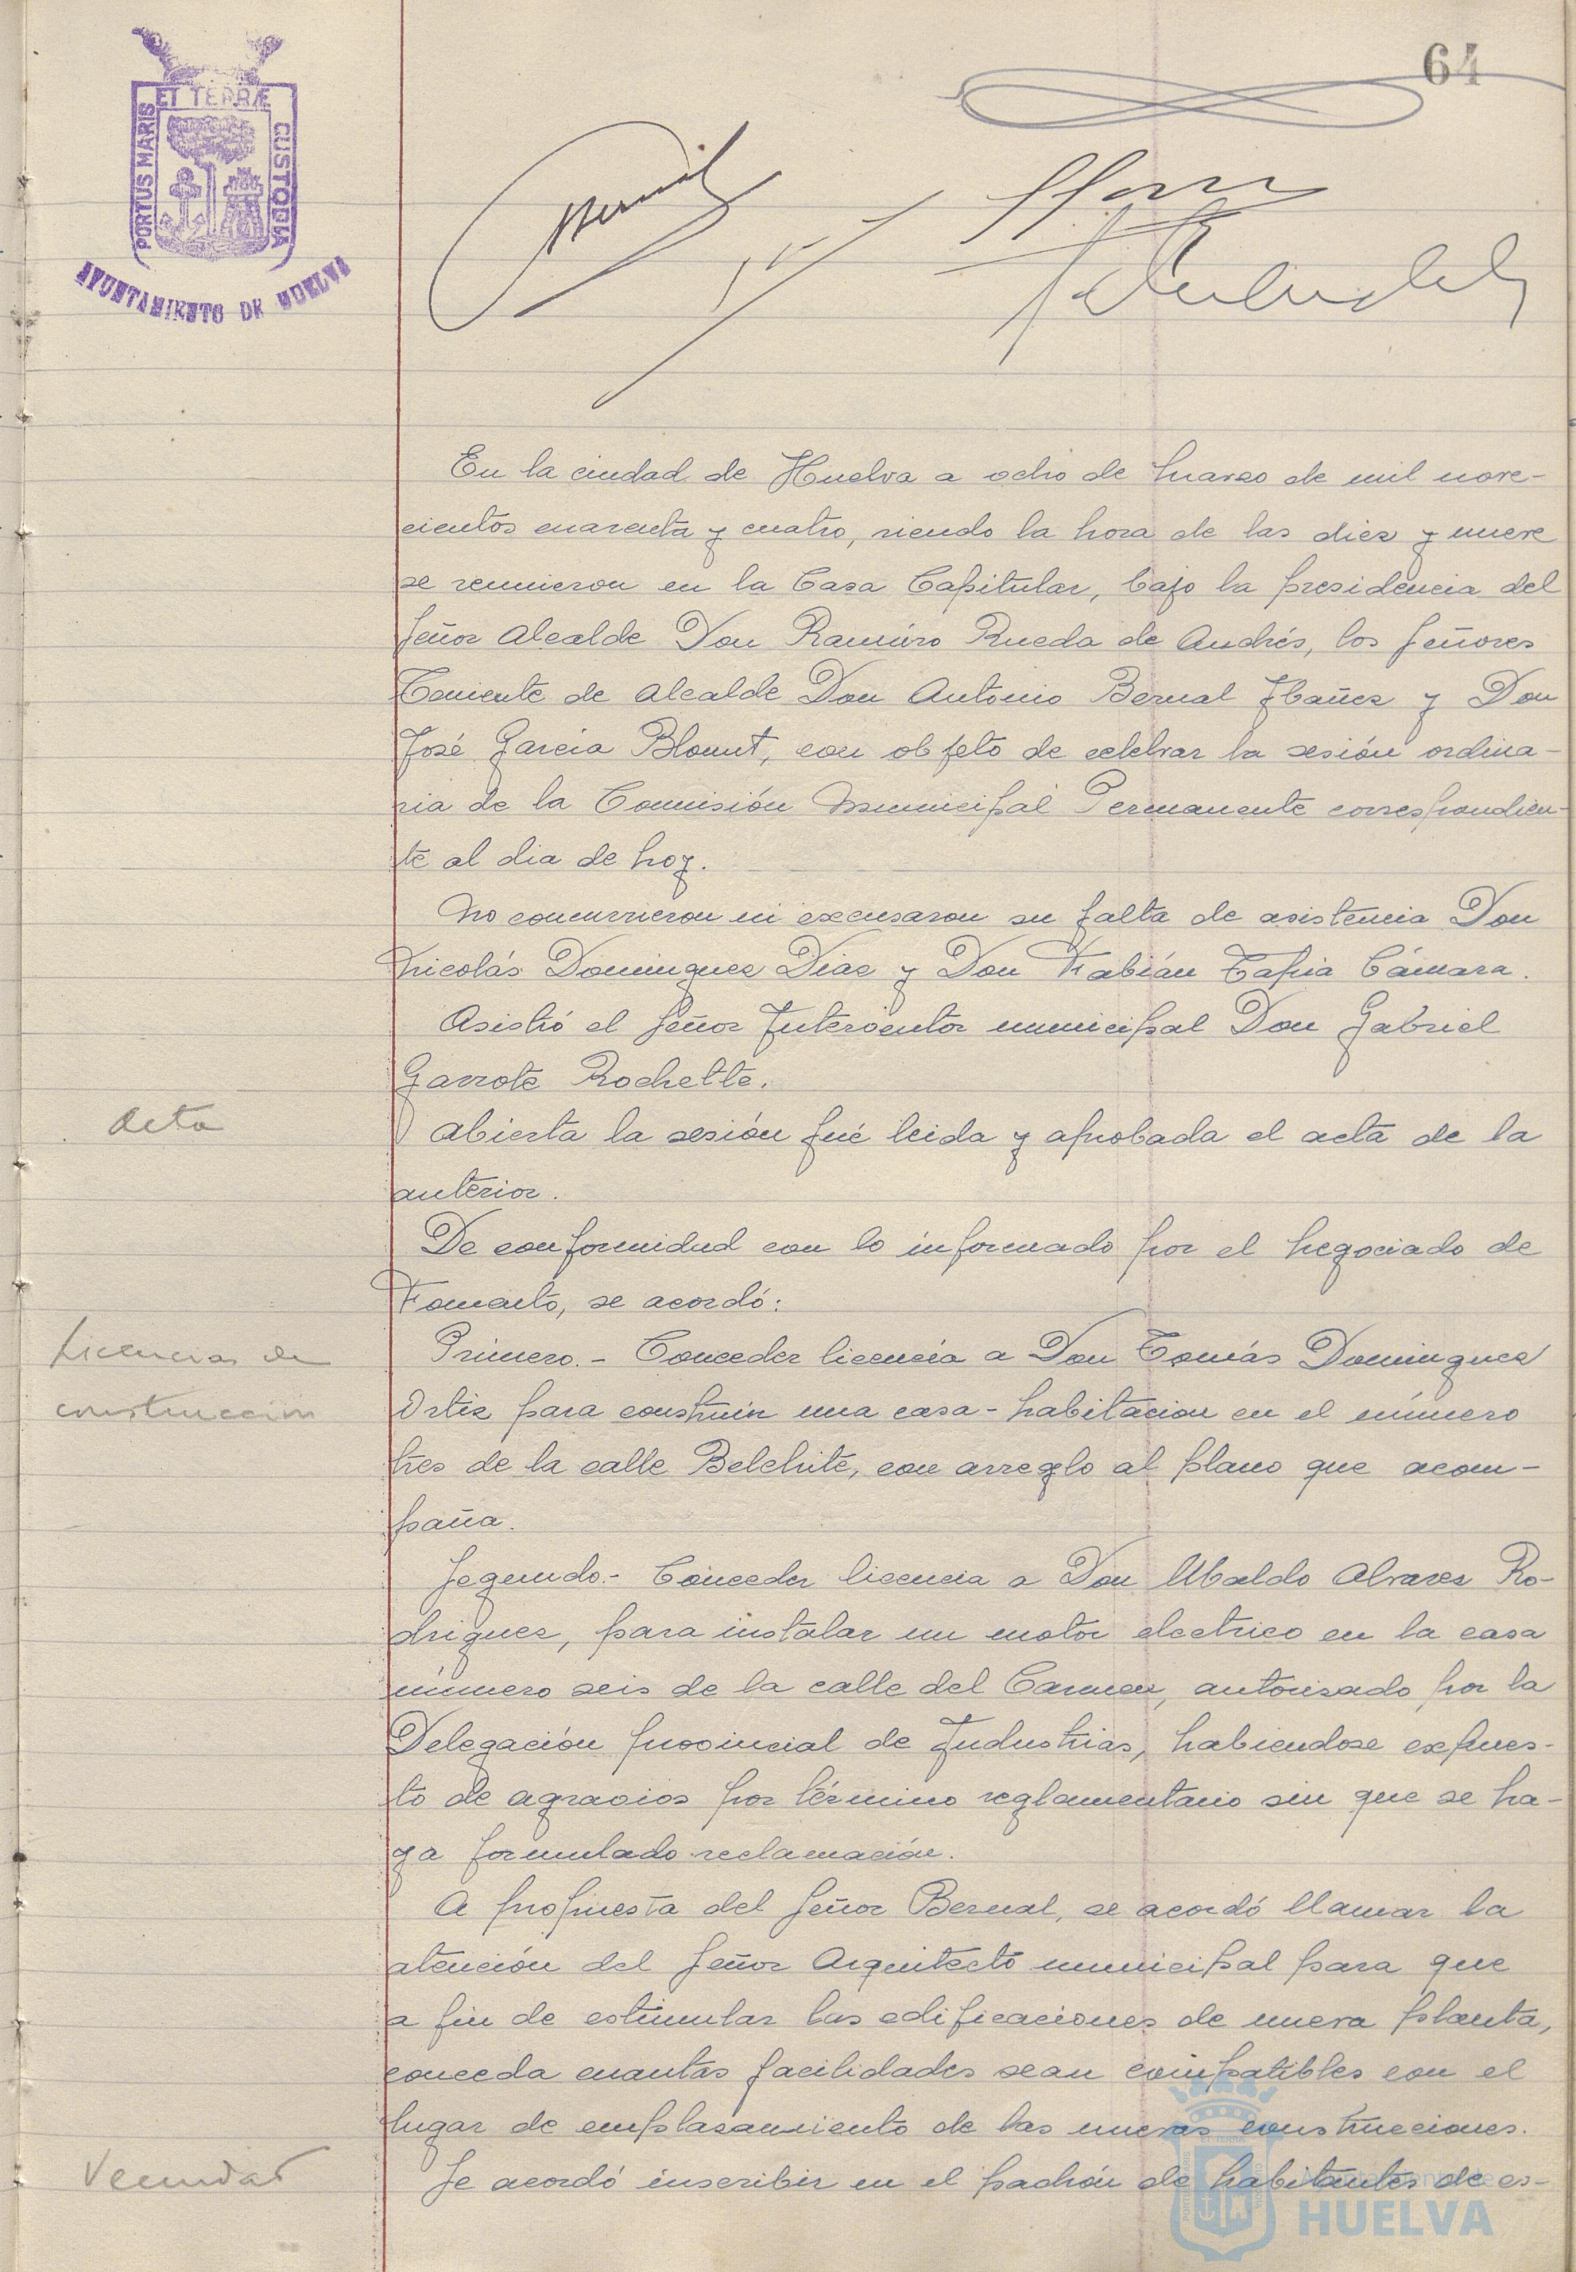 64
PORTUS MARIS ET TERRÆ CUSTODIA
AYUNTAMIENTO DE HUELVA
En la ciudad de Huelva a ocho de marzo de mil nove-
cientos cuarenta y cuatro, siendo la hora de las diez y nueve
se reunieron en la Casa Capitular, bajo la presidencia del
Señor Alcalde Don Ramiro Rueda de Andrés, los Señores
Teniente de Alcalde Don Antonio Bernal Ibañez y Don
José Garcia Blount, con objeto de celebrar la sesión ordina-
ria de la Comisión Municipal Permanente correspondien-
te al dia de hoy.
No concurrieron ni excusaron su falta de asistencia Don
Nicolás Dominguez Diaz y Don Fabián Tapia Cámara.
Asistió el Señor Interventor municipal Don Gabriel
Garrote Rochette.
Acta
Abierta la sesión fué leida y aprobada el acta de la
anterior.
De conformidad con lo informado por el Negociado de
Fomento, se acordó:
Licencias de
construccion
Primero.- Conceder licencia a Don Tomás Dominguez
Ortiz para construir una casa-habitacion en el número
tres de la calle Belchite, con arreglo al plano que acom-
paña.
Segundo.- Conceder licencia a Don Ubaldo Alvarez Ro-
driguez, para instalar un motor electrico en la casa
número seis de la calle del Carmen, autorizado por la
Delegación provincial de Industrias, habiendose expues-
to de agravios por término reglamentario sin que se ha-
ya formulado reclamación.
A propuesta del Señor Bernal, se acordó llamar la
atención del Señor Arquitecto municipal para que
a fin de estimular las edificaciones de nueva planta,
conceda cuantas facilidades sean compatibles con el
lugar de emplazamiento de las nuevas construcciones.
Vecindad
Se acordó inscribir en el padrón de habitantes de es-
HUELVA